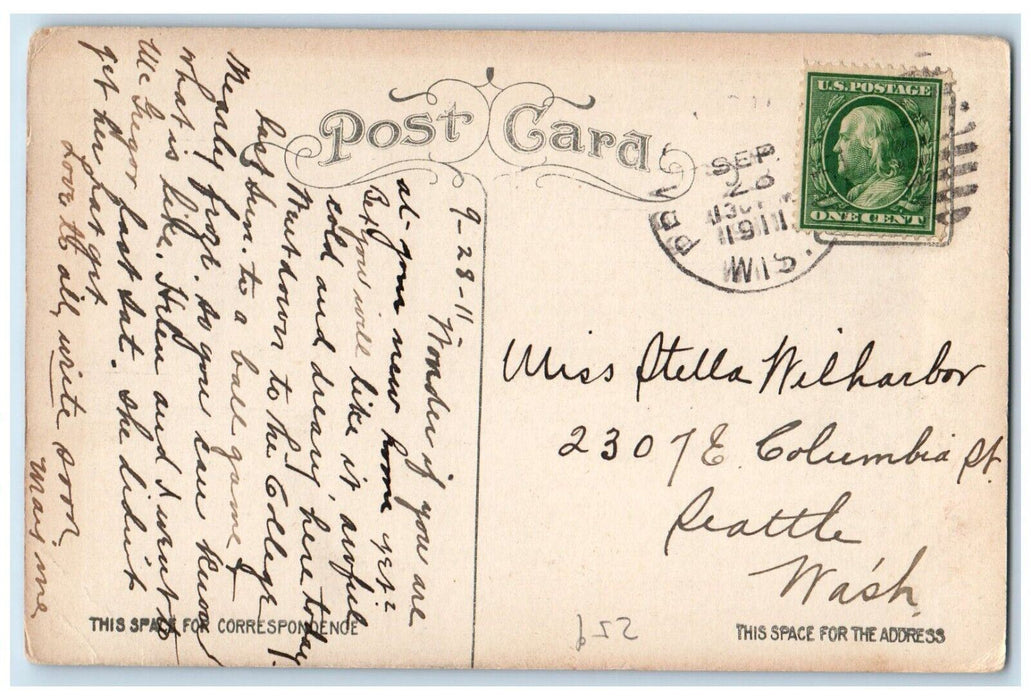 Post Card
U.S. POSTAGE
ONE CENT
SEP
28
1911
WIS.
9-28-11
Wonder if you are
at your new home yet?
Bet you will like it awful
cold and dreary here today.
Went down to the College
last Sun. to a ball game &
nearly froze. so you can know
what is like. Helen and I went to
McGregor last Sat. she didn't
get her hat yet
Love to all, write soon.
Mayme
Miss Stella Wilharbor
2307 E. Columbia St.
Seattle
Wash.
THIS SPACE FOR CORRESPONDENCE
THIS SPACE FOR THE ADDRESS